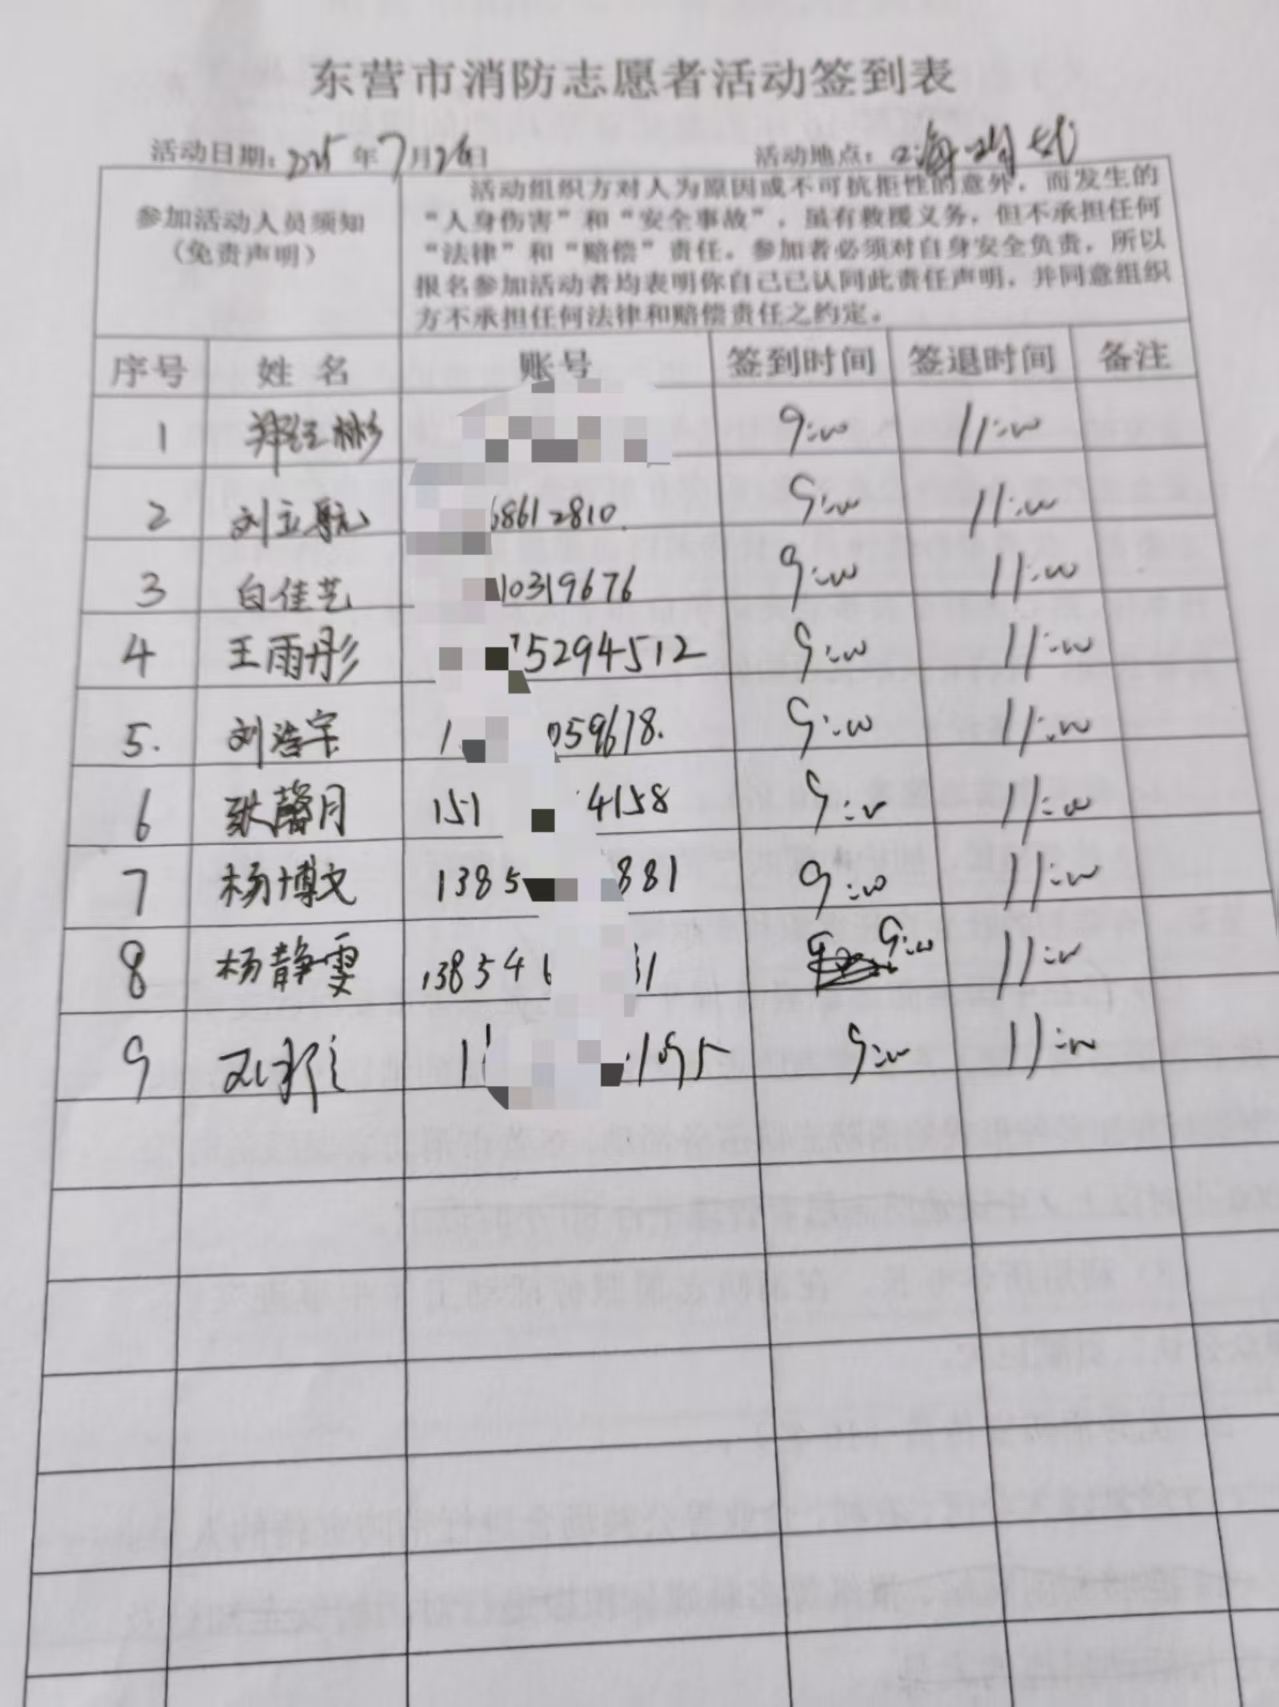 东营市消防志愿者活动签到表
活动日期：2025年7月26日 活动地点：
参加活动人员须知
（免责声明）
活动组织方对人为原因或不可抗拒性的意外，而发生的
“人身伤害”和“安全事故”，虽有救援义务，但不承担任何
“法律”和“赔偿”责任。参加者必须对自身安全负责，所以
报名参加活动者均表明你自己已认同此责任声明，并同意组织
方不承担任何法律和赔偿责任之约定。
序号 姓 名 账号 签到时间 签退时间 备注
1 9:00 11:00
2 刘立航 68612810 9:00 11:00
3 白佳艺 10319676 9:00 11:00
4 王雨彤 75294512 9:00 11:00
5. 刘浩宇 1 059618. 9:00 11:00
6 张馨月 151 4158 9:00 11:00
7 杨博文 1385 881 9:00 11:00
8 杨静雯 13854 31 9:00 11:00
9 1 1095 9:00 11:00